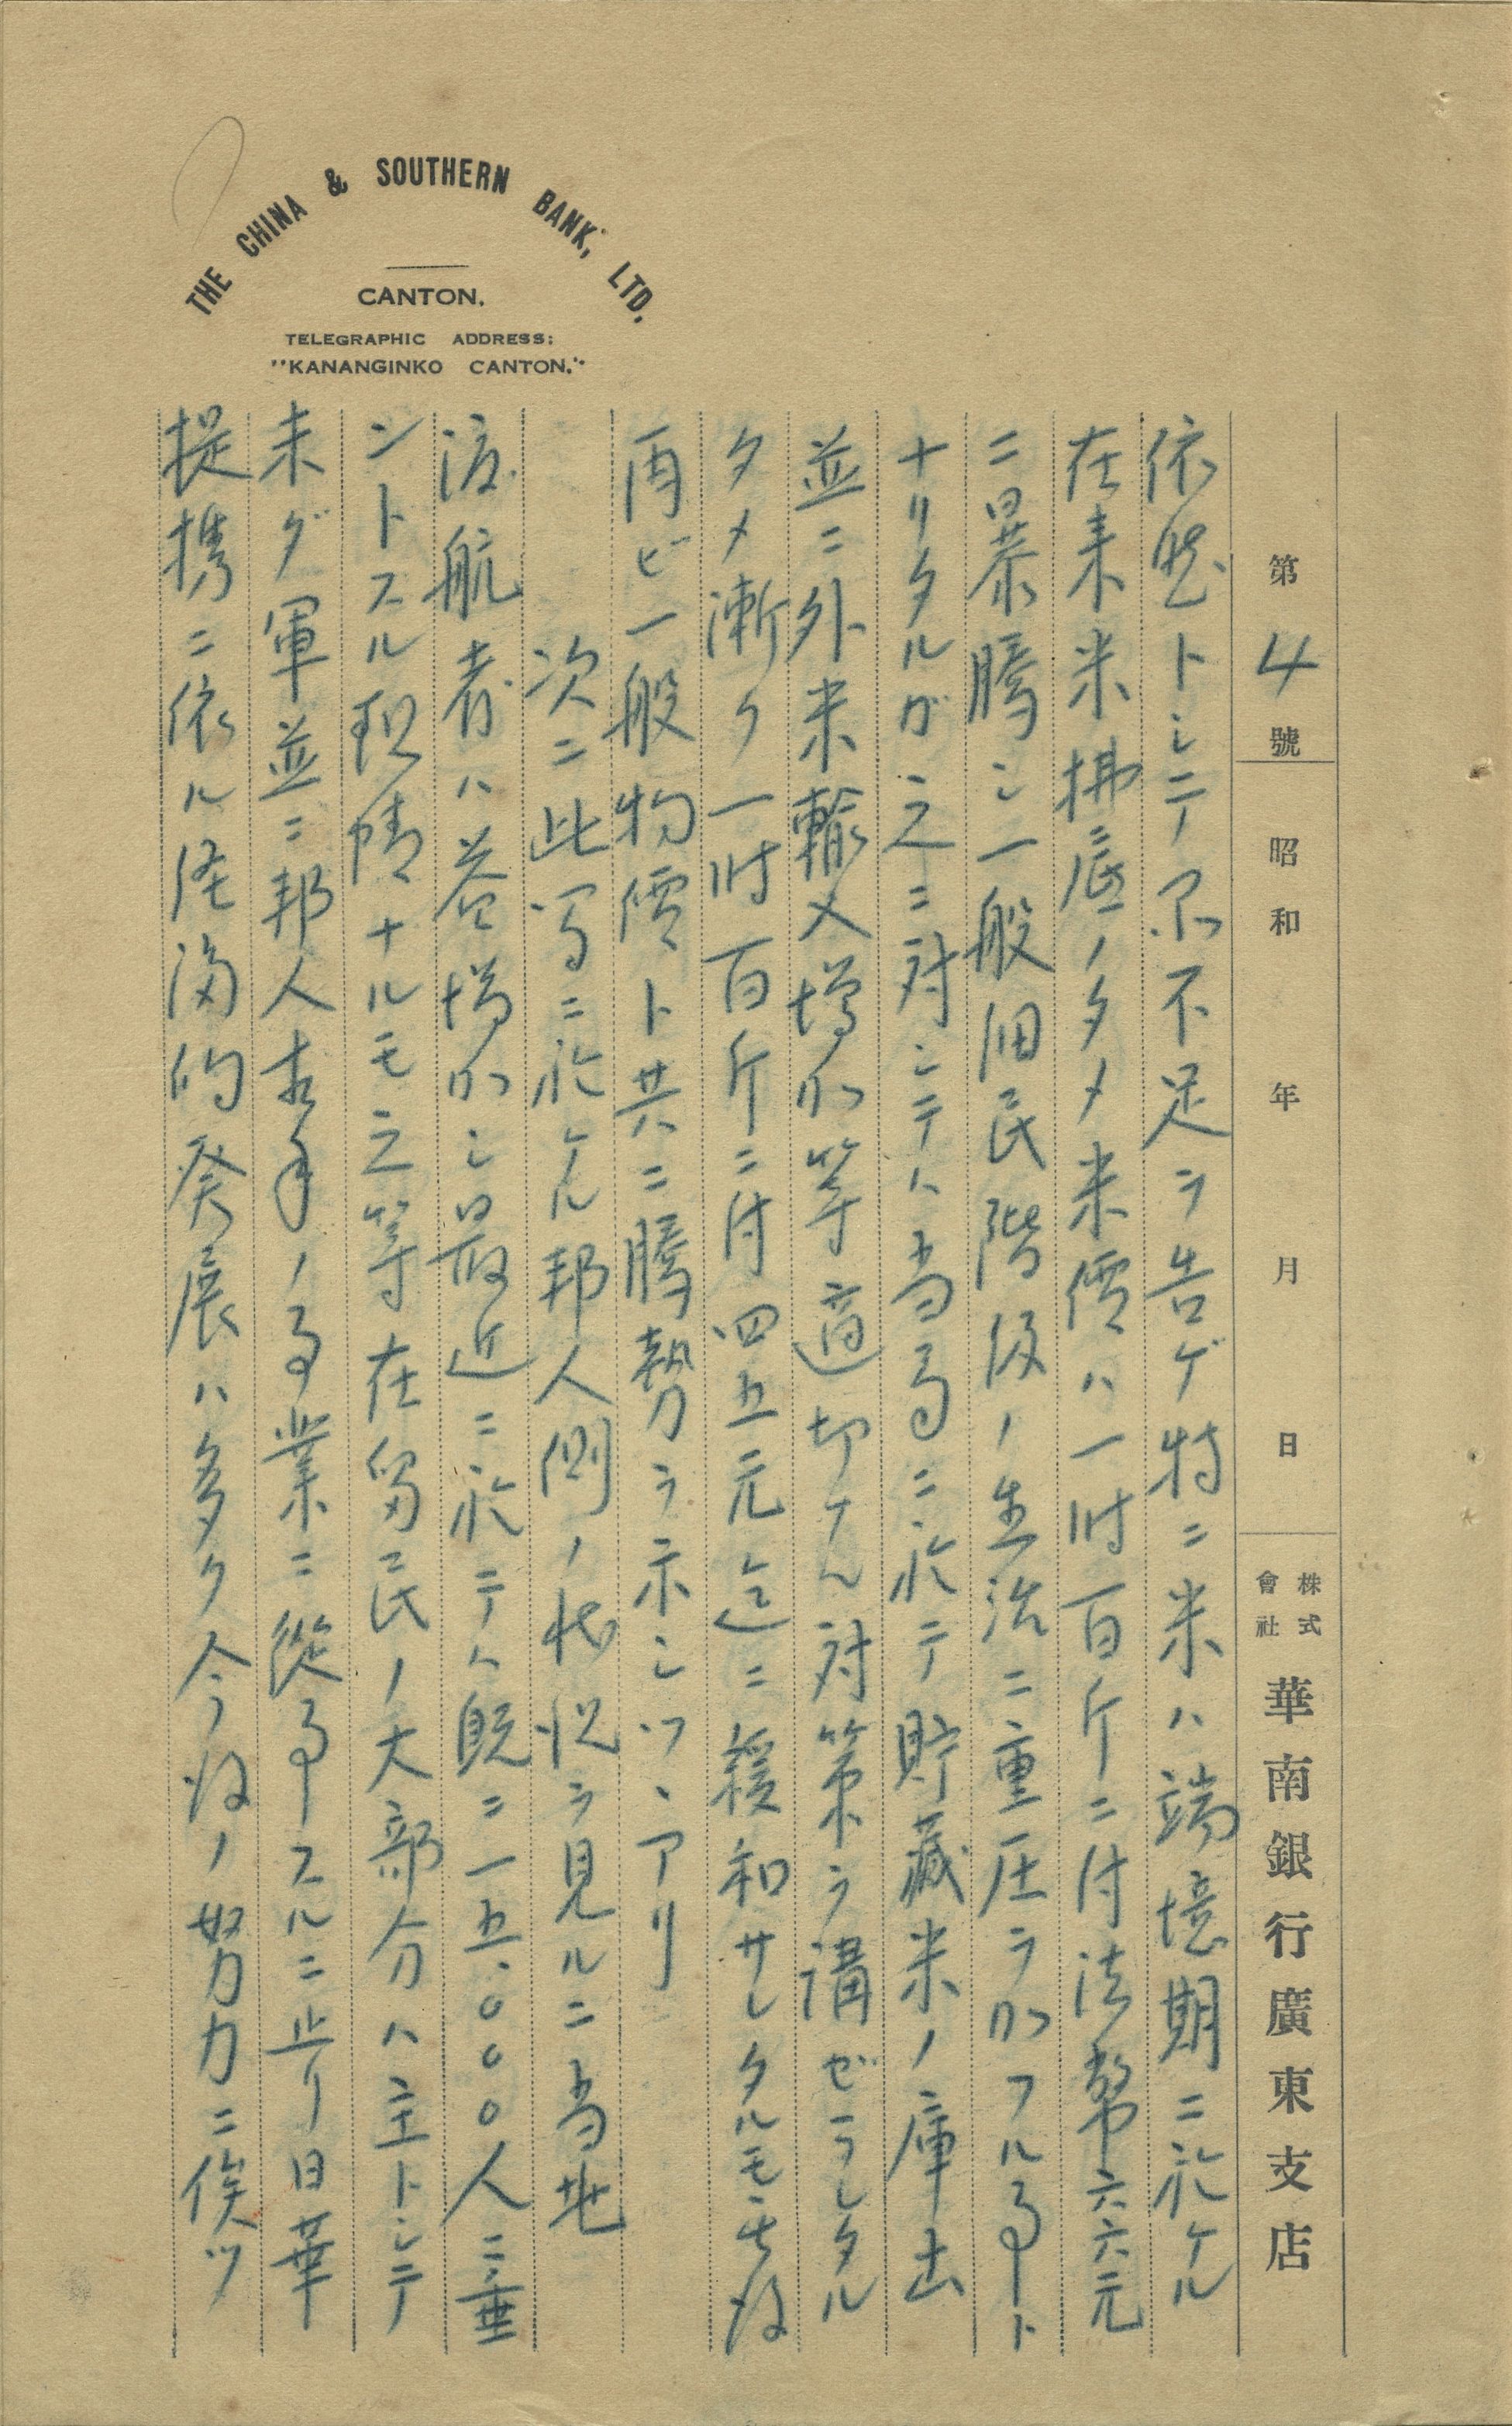 THE CHINA & SOUTHERN BANK, LTD.
CANTON.
TELEGRAPHIC ADDRESS:
"KANANGINKO CANTON."
第4號 昭和 年 月 日 株式會社 華南銀行廣東支店
依然トシテ不足ヲ告ゲ特ニ米ハ端境期ニ於ケル
在来米拂底ノタメ米價ハ一時百斤ニ付法幣六六元
ニ暴騰シ一般細民階級ノ生活ニ重圧ヲ加フル事ト
ナリタルガ之ニ対シテハ当局ニ於テ貯藏米ノ庫出
並ニ外米輸入増加等適切ナル対策ヲ講ゼラレタル
タメ漸ク一時百斤ニ付四五元迄ニ緩和サレタルモ其後
再ビ一般物價ト共ニ騰勢ヲ示シツヽアリ
次ニ此間ニ於ケル邦人側ノ状況ヲ見ルニ当地
渡航者ハ益増加シ最近ニ於テハ既ニ一五.〇〇〇人ニ垂
ントスル現情ナルモ之等在留民ノ大部分ハ主トシテ
未ダ軍並ニ邦人相手ノ事業ニ從事スルニ止リ日華
提携ニ依ル経済的発展ハ多ク今後ノ努力ニ俟ツ